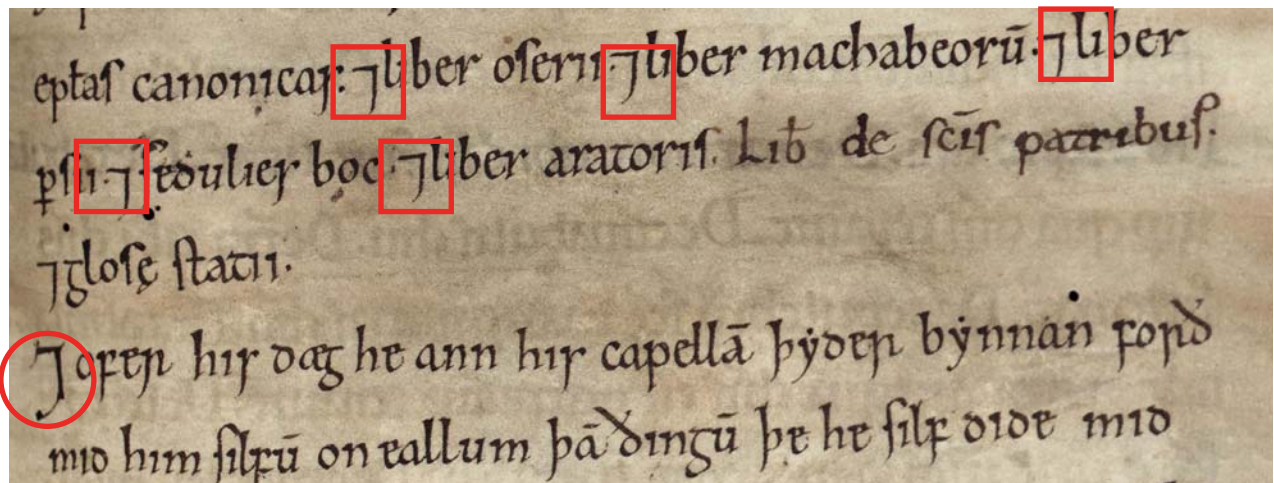 epłaſ canonicas: ⁊ liber oſerii: ⁊ liber machabeorū. ⁊ liber
ꝑſii. ⁊ ſedulies boc. ⁊ liber aratoriſ. Lib̄ de ſc̄iſ patribuſ.
⁊ gloſę ſtatii.
⁊ ofer his dæg he ann his capellā þẏder bẏnnan forð
mid him ſilfū on eallum þā ðingū þe he ſilf dide mid